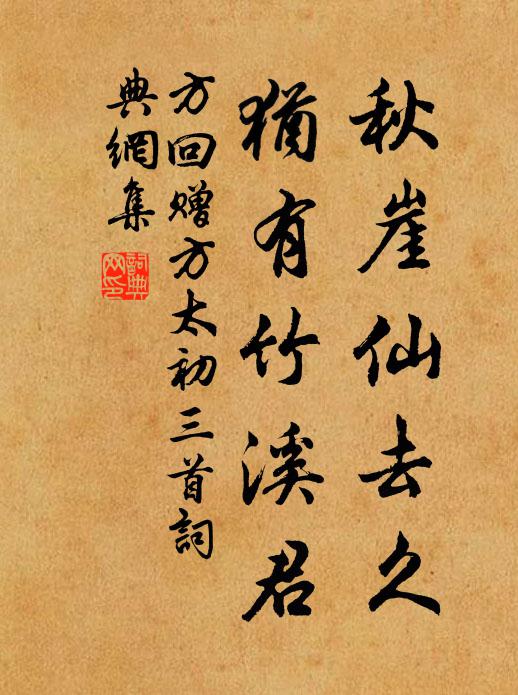 秋崖仙去久
猶有竹溪君
方回赠方太初三首詞
典網集
詞典網印